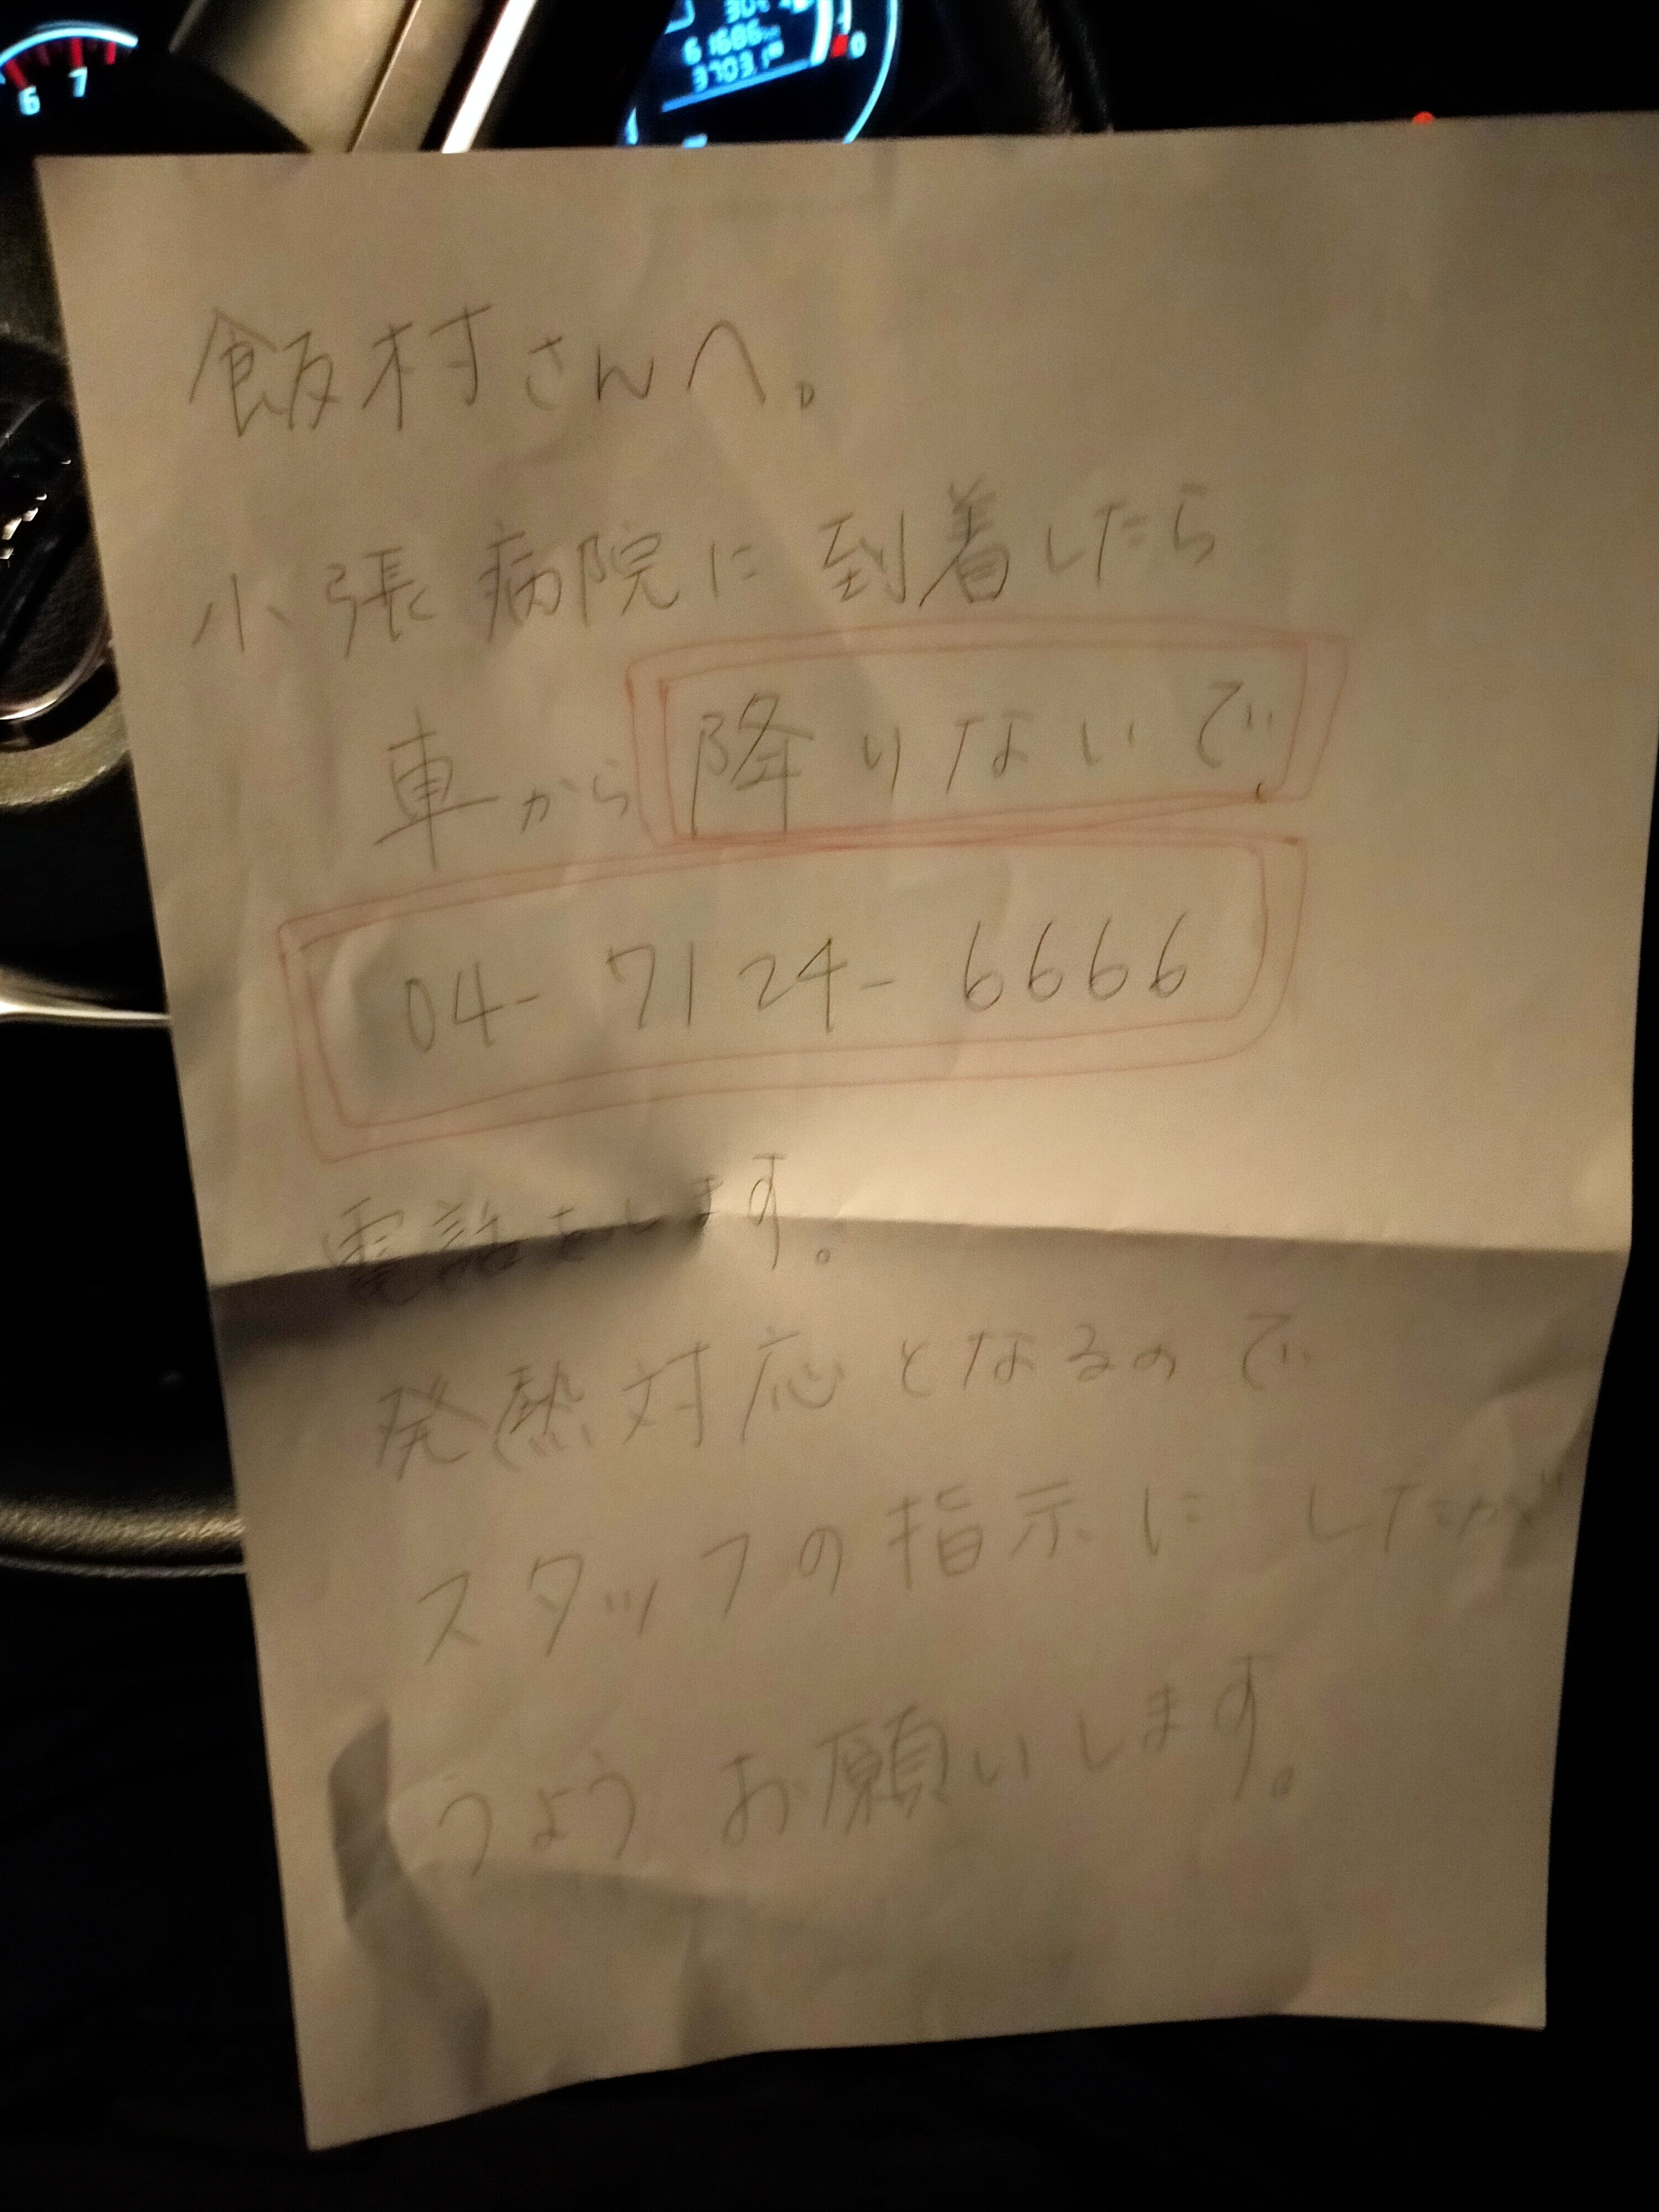 6 7
30
61686
3703.1
0
飯村さんへ。
小張病院に到着したら
車から降りないで
04-7124-6666
電話をします。
発熱対応となるので
スタッフの指示にしたが
うようお願いします。